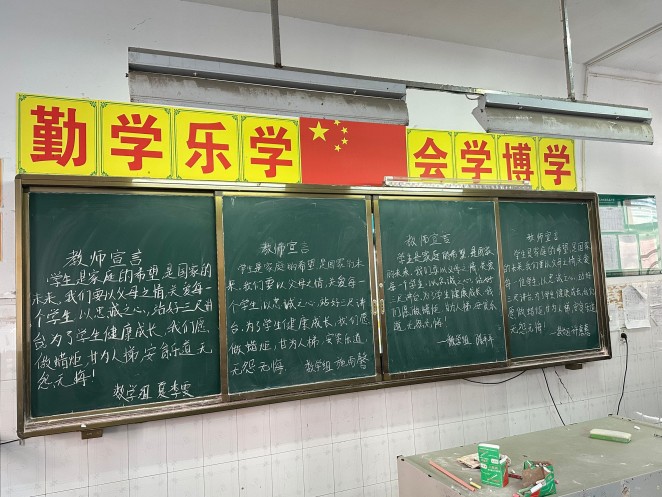 勤学乐学
会学博学
教师宣言
学生是家庭的希望,是国家的
未来,我们要以父母之情,关爱每一
个学生,以忠诚之心,站好三尺讲
台,为了学生健康成长,我们愿
做蜡炬,甘为人梯,安贫乐道,无
怨无悔!
数学组 夏季雯
教师宣言
学生是家庭的希望,是国家的
未来,我们要以父母之情,关爱每一
个学生,以忠诚之心,站好三尺讲
台,为了学生健康成长,我们愿
做蜡炬,甘为人梯,安贫乐道,
无怨无悔
数学组
教师宣言
学生是家庭的希望,是国家
的未来,我们要以父母之情,关爱
每一个学生,以忠诚之心,站好
三尺讲台,为了学生健康成长,
我们愿做蜡炬,甘为人梯,安贫乐
道,无怨无悔!
数学组
教师宣言
学生是家庭的希望,是国家的
未来,我们要以父母之情,关爱每
一个学生,以忠诚之心,站好
三尺讲台,为了学生健康成长,我们
愿做蜡炬,甘为人梯,安贫乐道
无怨无悔!
数学组